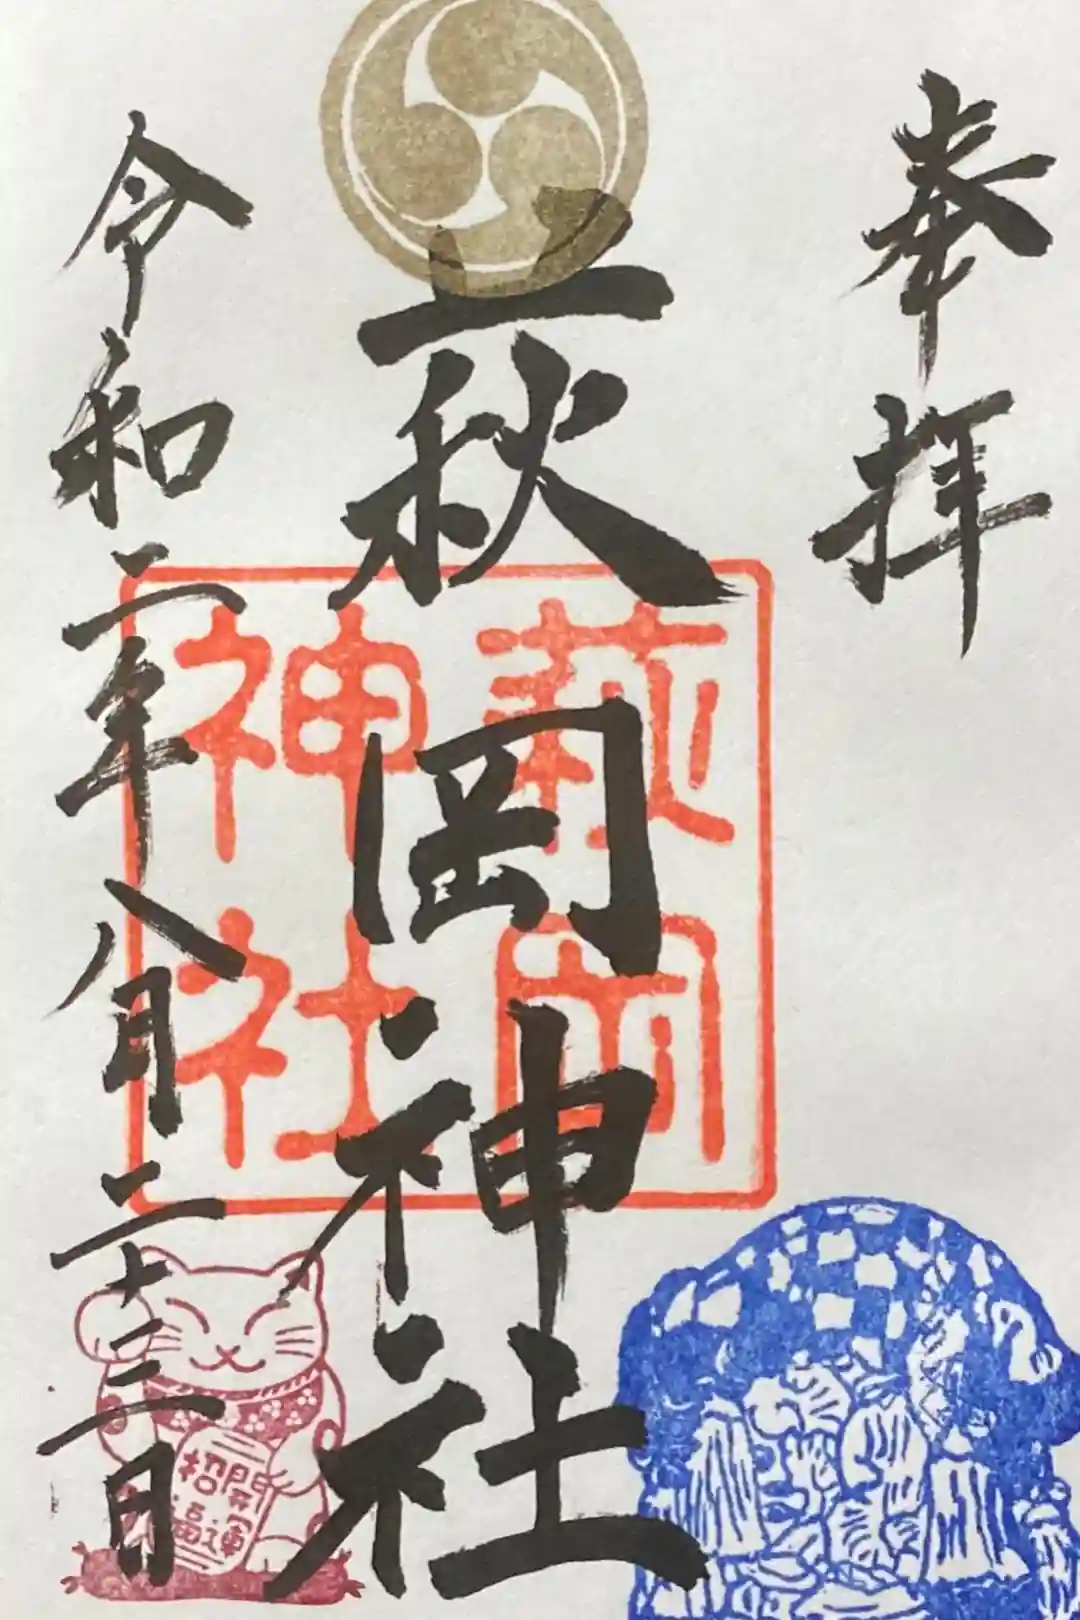 奉拝
萩岡神社
萩岡
神社
令和二年八月二十三日
開運
招福